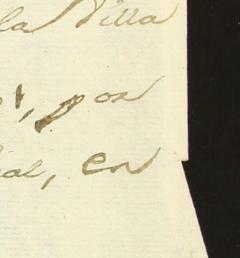 la Villa
, por
al, en